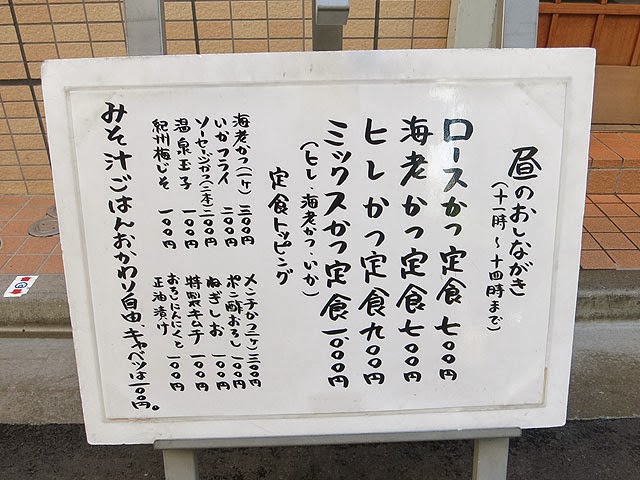 昼のおしながき
(十一時〜十四時まで)
ロースかつ定食 七〇〇円
海老かつ定食 七〇〇円
ヒレかつ定食 九〇〇円
ミックスかつ定食 一、〇〇〇円
(ヒレ、海老かつ、いか)
定食トッピング
海老かつ(一ヶ) 三〇〇円
いかフライ 二〇〇円
ソーセージかつ(二本) 二〇〇円
温泉玉子 一〇〇円
紀州梅じそ 一〇〇円
メンチかつ(一ヶ) 三〇〇円
ポン酢おろし 一〇〇円
ねぎしお 一〇〇円
特製キムチ 一〇〇円
おろしにんにくと
正油漬け 一〇〇円
みそ汁ごはんおかわり自由、キャベツは一〇〇円。